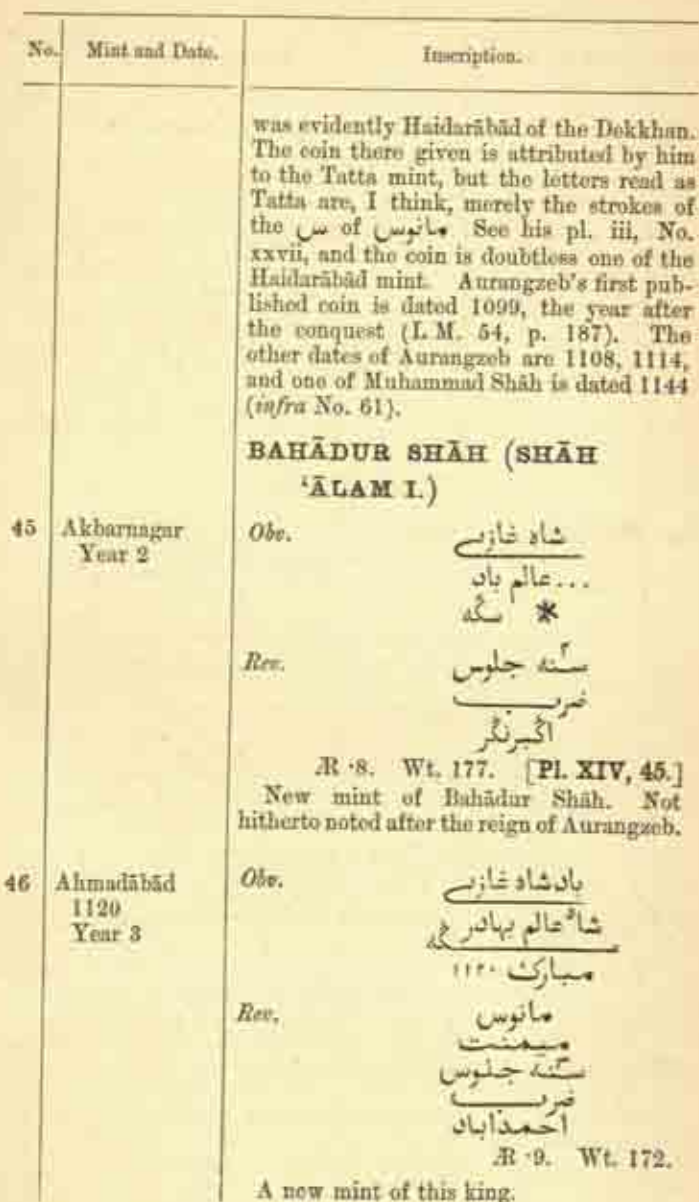 No. Mint and Date. Inscription.
was evidently Haidarābād of the Dekkhan.
The coin there given is attributed by him
to the Tatta mint, but the letters read as
Tatta are, I think, merely the strokes of
the س of مانوس See his pl. iii, No.
xxvii, and the coin is doubtless one of the
Haidarābād mint. Aurangzeb's first pub-
lished coin is dated 1099, the year after
the conquest (L.M. 54, p. 187). The
other dates of Aurangzeb are 1108, 1114,
and one of Muhammad Shāh is dated 1144
(infra No. 61).
BAHĀDUR SHĀH (SHĀH
‘ĀLAM I.)
45 Akbarnagar Obv. شاه غازی
Year 2
... عالم باد
* سكه
Rev. سنه ۲ جلوس
ضرب
اكبرنگر
Æ ·8. Wt. 177. [Pl. XIV, 45.]
New mint of Bahādur Shāh. Not
hitherto noted after the reign of Aurangzeb.
46 Ahmadābād Obv. بادشاه غازی
1120
Year 3
شاه عالم بهادر سكه
مبارك ۱۱۲۰
Rev. مانوس
ميمنت
سنه ۳ جلوس
ضرب
احمداباد
Æ ·9. Wt. 172.
A new mint of this king.